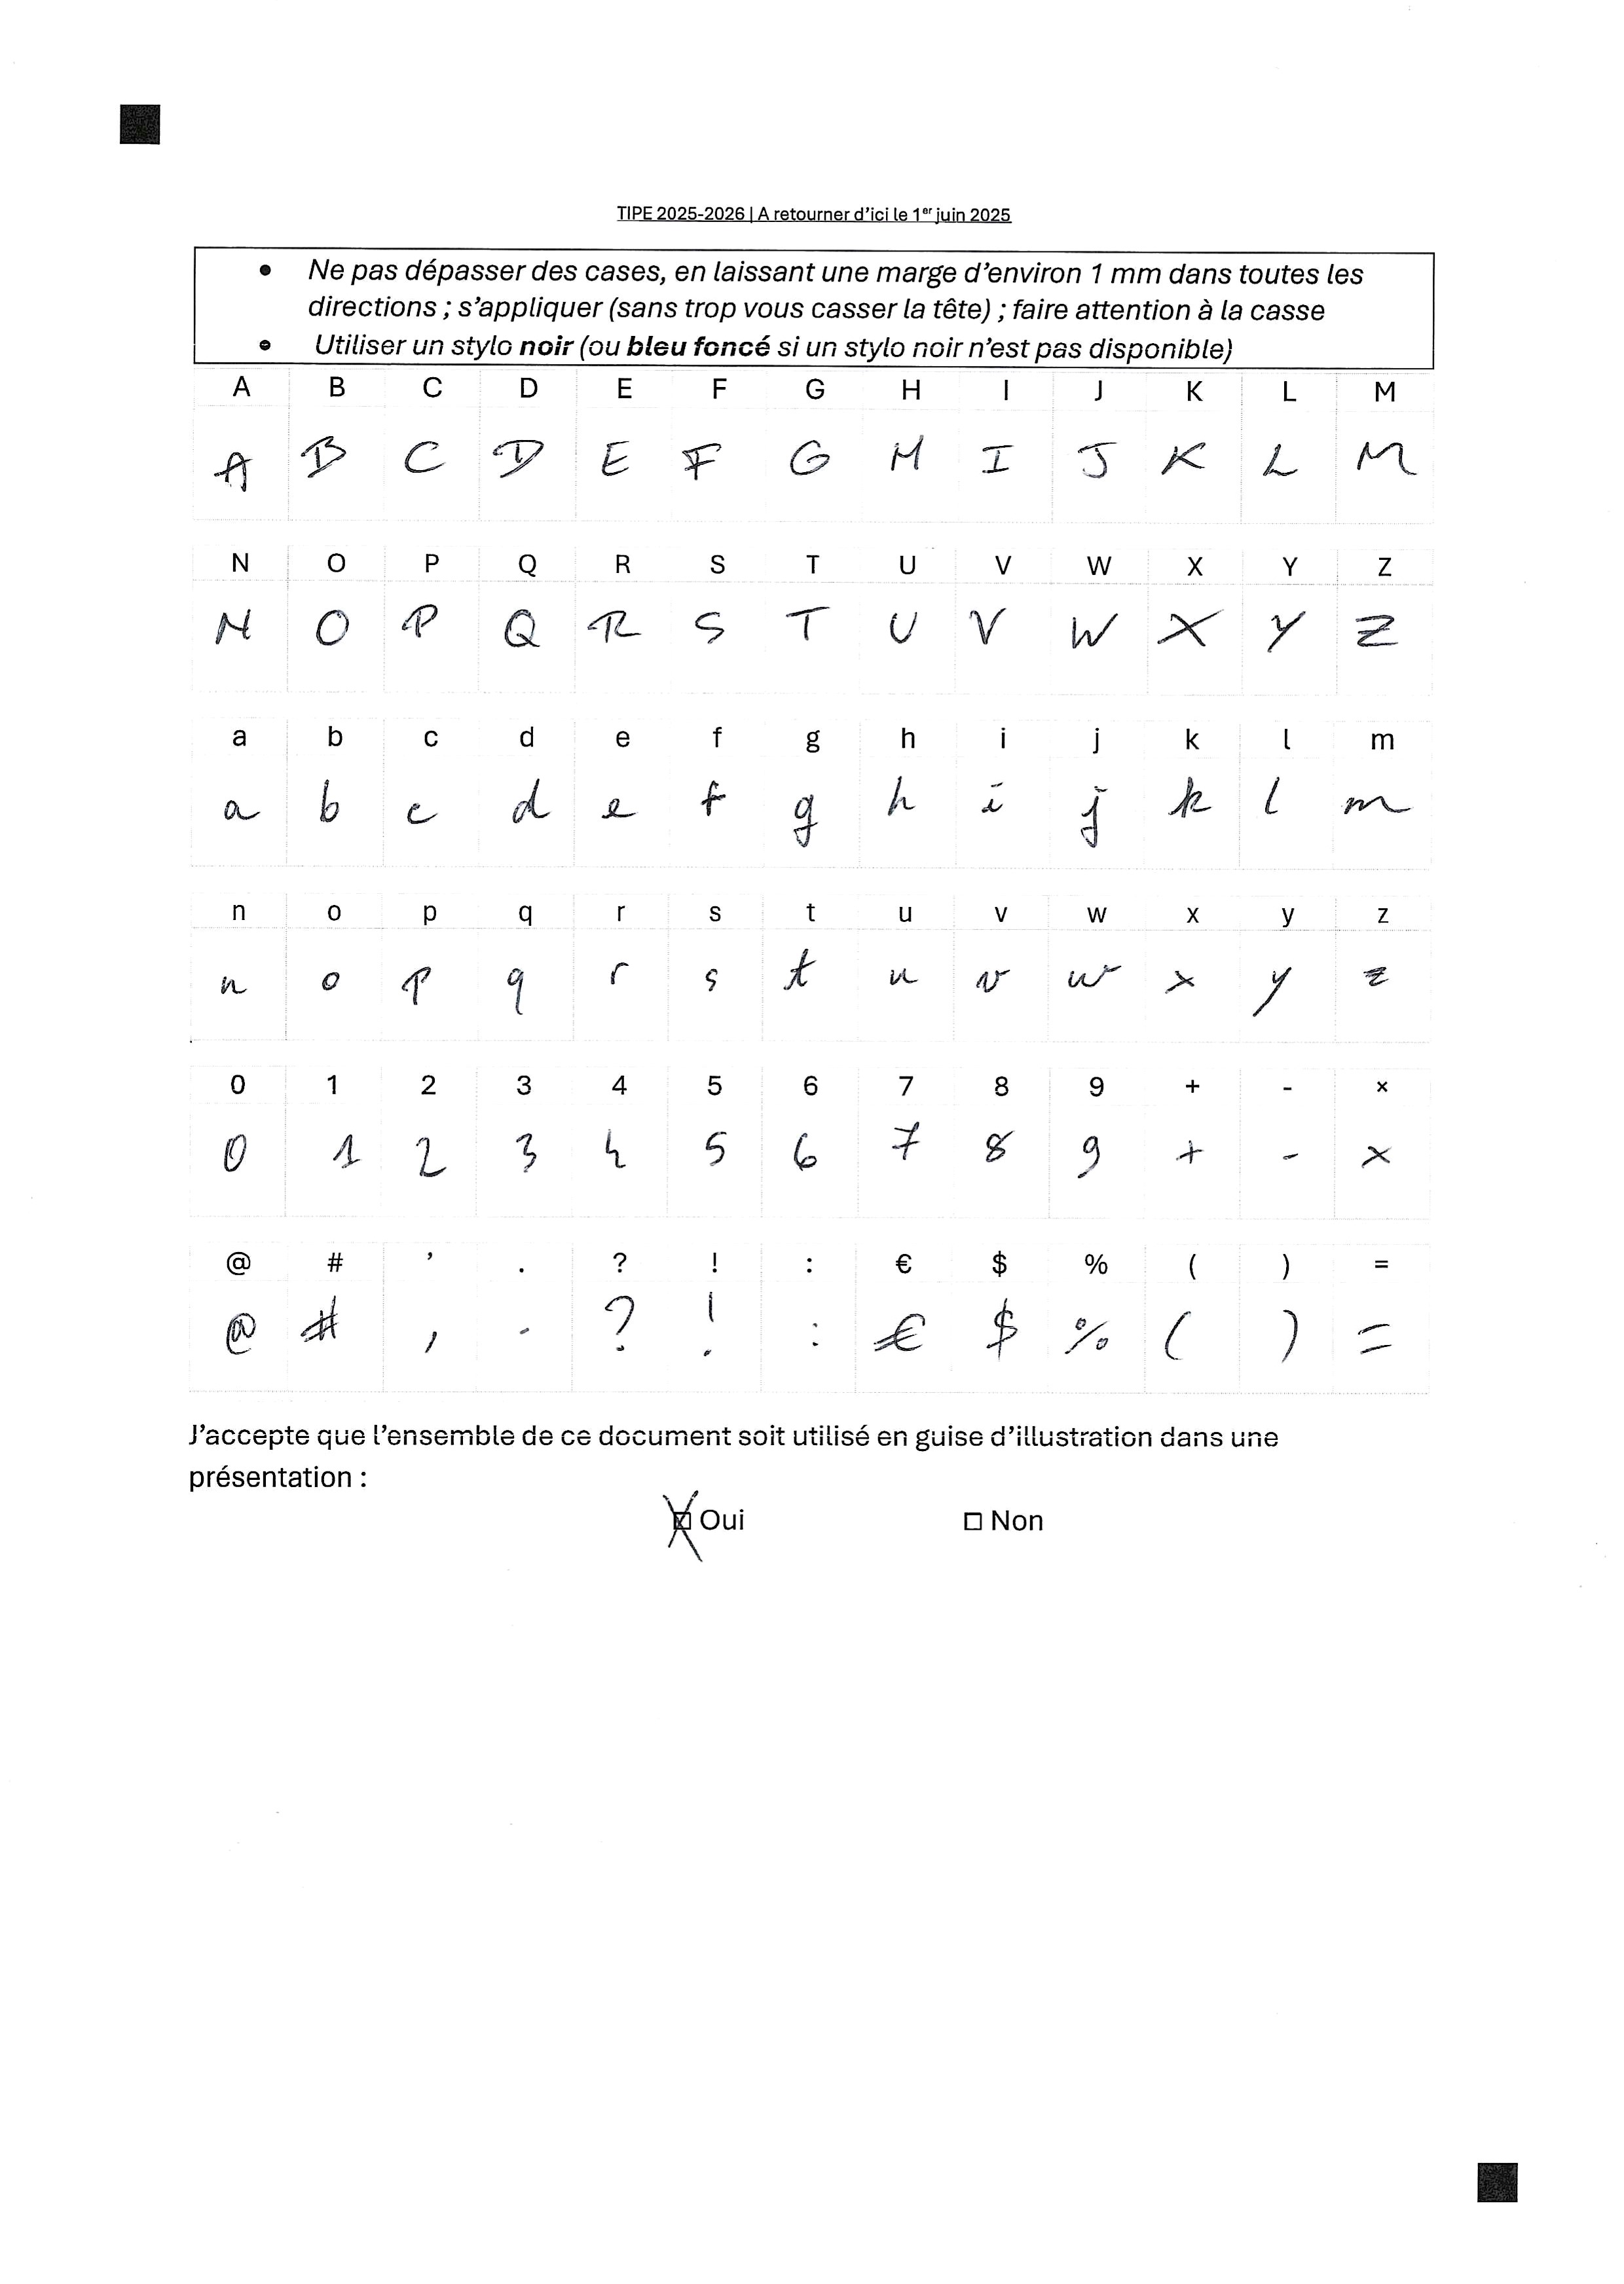 TIPE 2025-2026 | A retourner d'ici le 1er juin 2025
• Ne pas dépasser des cases, en laissant une marge d'environ 1 mm dans toutes les
directions ; s'appliquer (sans trop vous casser la tête) ; faire attention à la casse
• Utiliser un stylo noir (ou bleu foncé si un stylo noir n'est pas disponible)
A B C D E F G H I J K L M
A B C D E F G H I J K L M
N O P Q R S T U V W X Y Z
N O P Q R S T U V W X Y Z
a b c d e f g h i j k l m
a b c d e f g h i j k l m
n o p q r s t u v w x y z
n o p q r s t u v w x y z
0 1 2 3 4 5 6 7 8 9 + - ×
0 1 2 3 4 5 6 7 8 9 + - ×
@ # ’ . ? ! : € $ % ( ) =
@ # , . ? ! : € $ % ( ) =
J'accepte que l'ensemble de ce document soit utilisé en guise d'illustration dans une
présentation :
☒ Oui ☐ Non